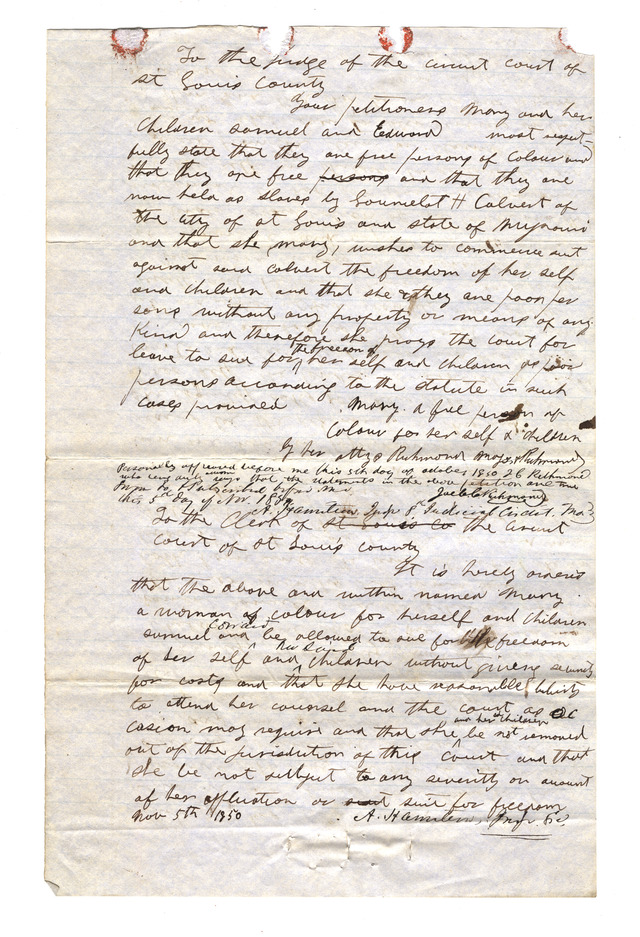 To the judge of the circuit court of
st Louis County
Your petitioners Mary and her
Children samuel and Edward most respect-
fully state that they are free persons of Colour and
that they are free persons and that they are
now held as slaves by H Calvert of
the city of st Louis and state of
and that she, mary, wishes to commence suit
against said calvert the freedom of her self
and children and that she & they are poor per
sons without any property or means of any
Kind and therefore she prays the court for
leave to sue for the freedom of her self and children as poor
persons according to the statute in such
cases provided Mary. a free person of
Colour for her self & children
By her attys Richmond
Personally appeared before me this 5th day of 1850 Richmond
who being sworn says that the statements in the above petition are true
before me
this 5th day of Nov 1850
A. Hamilton Judge 8 Judicial Circt. Mo
To the Clerk of st Louis Co the Circuit
Court of st Louis County
It is hereby ordered
that the above and within named Mary
a woman of colour for herself and children
samuel and Edward be allowed to sue for freedom
of her self and her said children without giving security
for costs and that she have reasonable liberty
to attend her counsel and the court as oc
casion may require and that she and her children be not removed
out of the jurisdiction of this Court and that
she be not subject to any severity on account
of her application or suit suit for freedom
Nov 5th 1850 A. Hamilton,